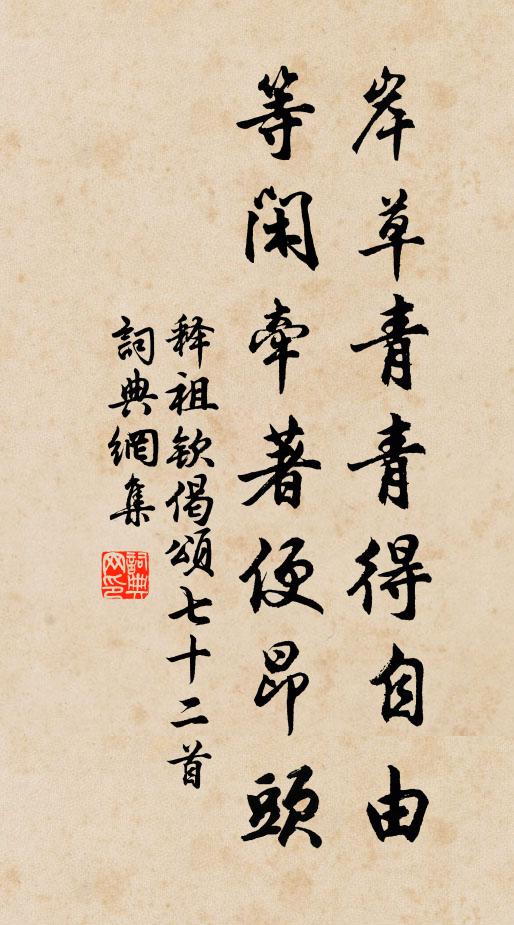 岸草青青得自由
等閑牽著便昂頭
释祖欽偈頌七十二首
詞典網集
詞典網印